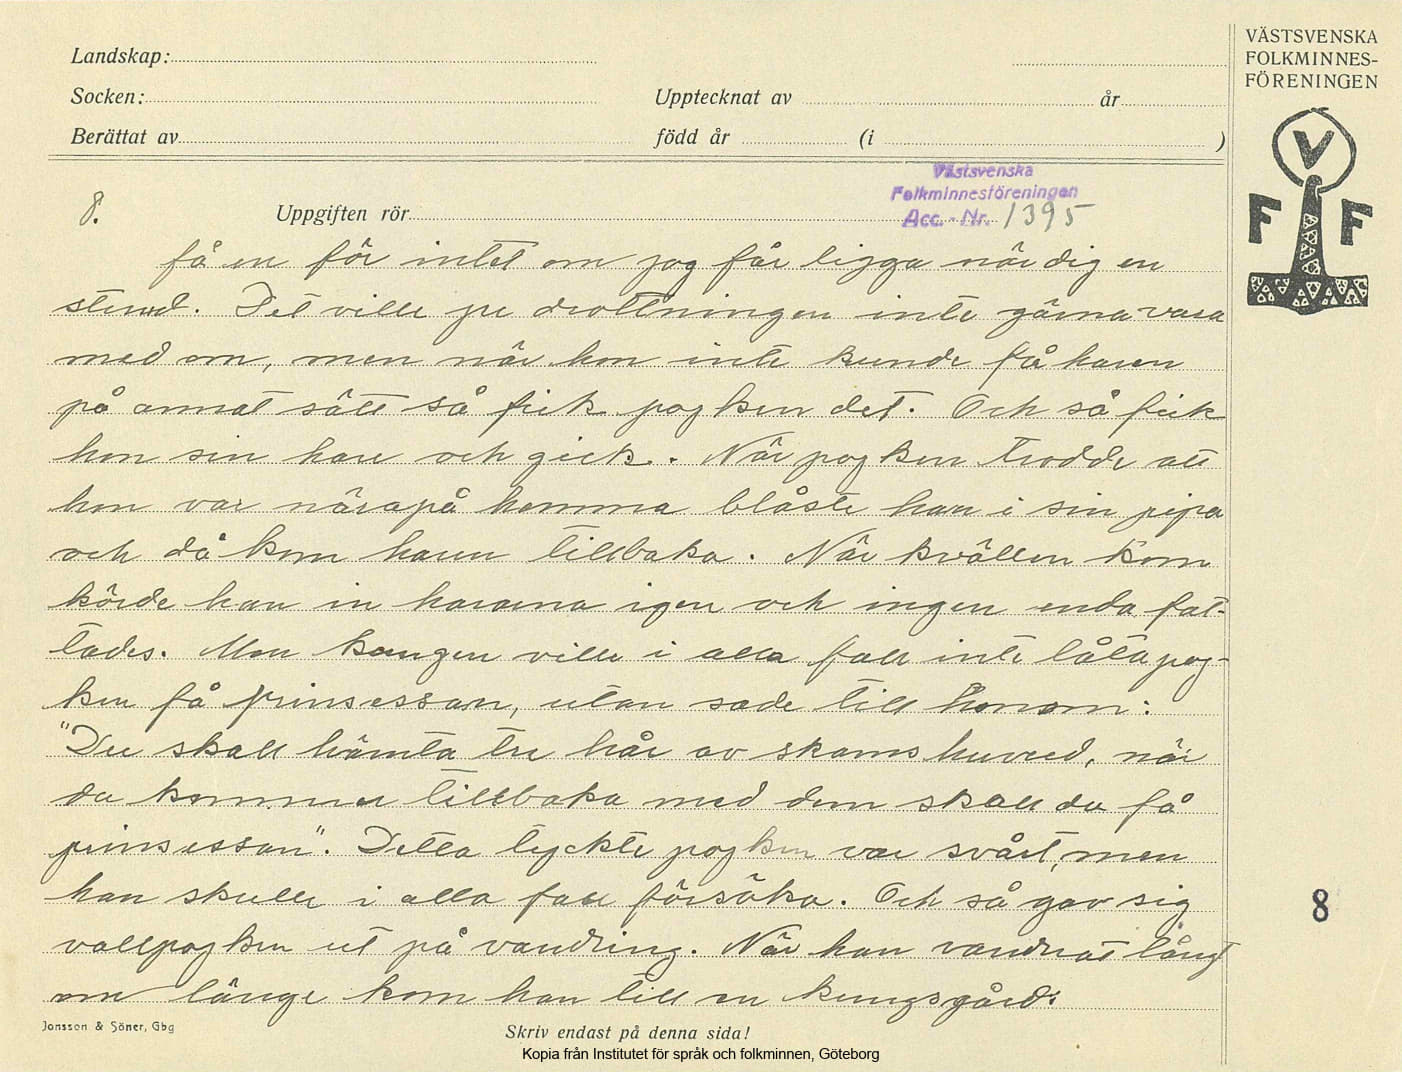 Landskap:
Socken:
Upptecknat av
år
Berättat av
född år
(i
)
VÄSTSVENSKA
FOLKMINNES-
FÖRENINGEN
V
F F
Västsvenska
Folkminnesföreningen
Acc.-Nr. 1395
8.
Uppgiften rör
få en för intet om jag får ligga när dig en
stund. Det ville ju drottningen inte gärna vara
med om, men när hon inte kunde få haren
på annat sätt så fick pojken det. Och så fick
hon sin hare och gick. När pojken trodde att
hon var närapå hemma blåste han i sin pipa
och då kom haren tillbaka. När kvällen kom
körde han in hararna igen och ingen enda fat-
tades. Men kungen ville i alla fall inte låta poj-
ken få prinsessan, utan sade till honom:
"Du skall hämta tre hår av skams huvud, när
du kommer tillbaka med dem skall du få
prinsessan". Detta tyckte pojken var svårt, men
han skulle i alla fall försöka. Och så gav sig
vallpojken ut på vandring. När han vandrat långt
om länge kom han till en kungsgård.
8
Jonsson & Söner, Gbg
Skriv endast på denna sida!
Kopia från Institutet för språk och folkminnen, Göteborg